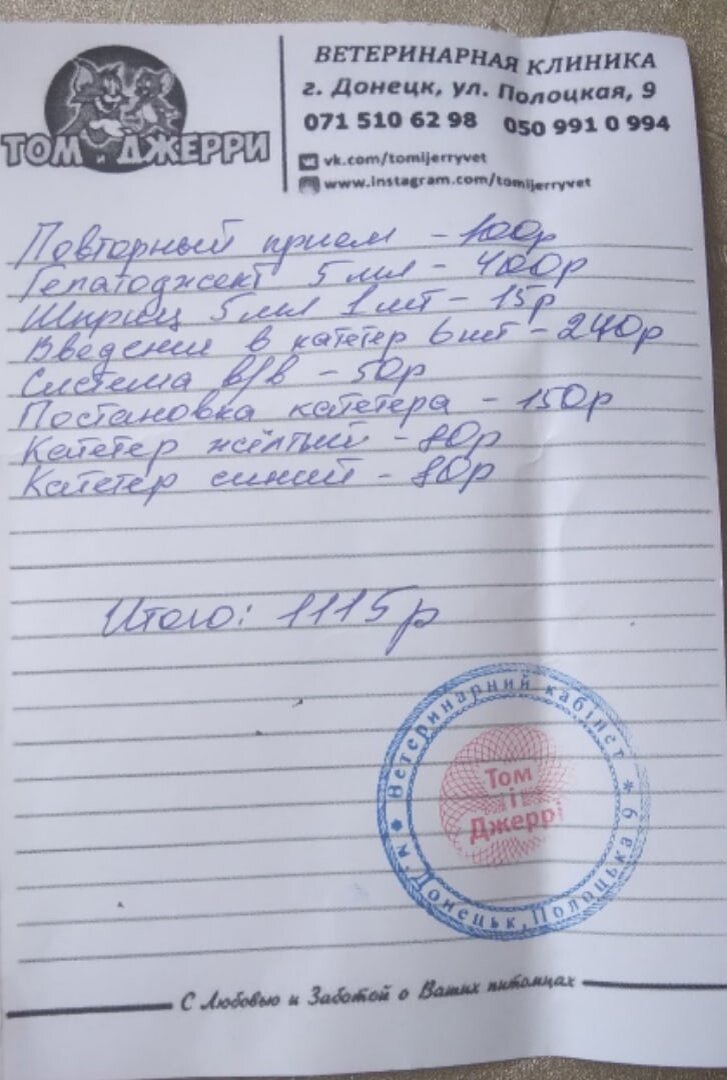 ТОМ и ДЖЕРРИ
ВЕТЕРИНАРНАЯ КЛИНИКА
г. Донецк, ул. Полоцкая, 9
071 510 62 98 050 991 0 994
vk.com/tomijerryvet
www.instagram.com/tomijerryvet
Повторный прием - 100р
Гепатоджект 5 мл - 400р
Шприц 5 мл 1 шт - 15р
Введение в катетер 6 шт - 240р
Система в/в - 50р
Постановка катетера - 150р
Катетер жёлтый - 80р
Катетер синий - 80р
Итого: 1115р
Ветеринарний кабінет
Том
і
Джеррі
м. Донецьк, Полоцька 9
С Любовью и Заботой о Ваших питомцах